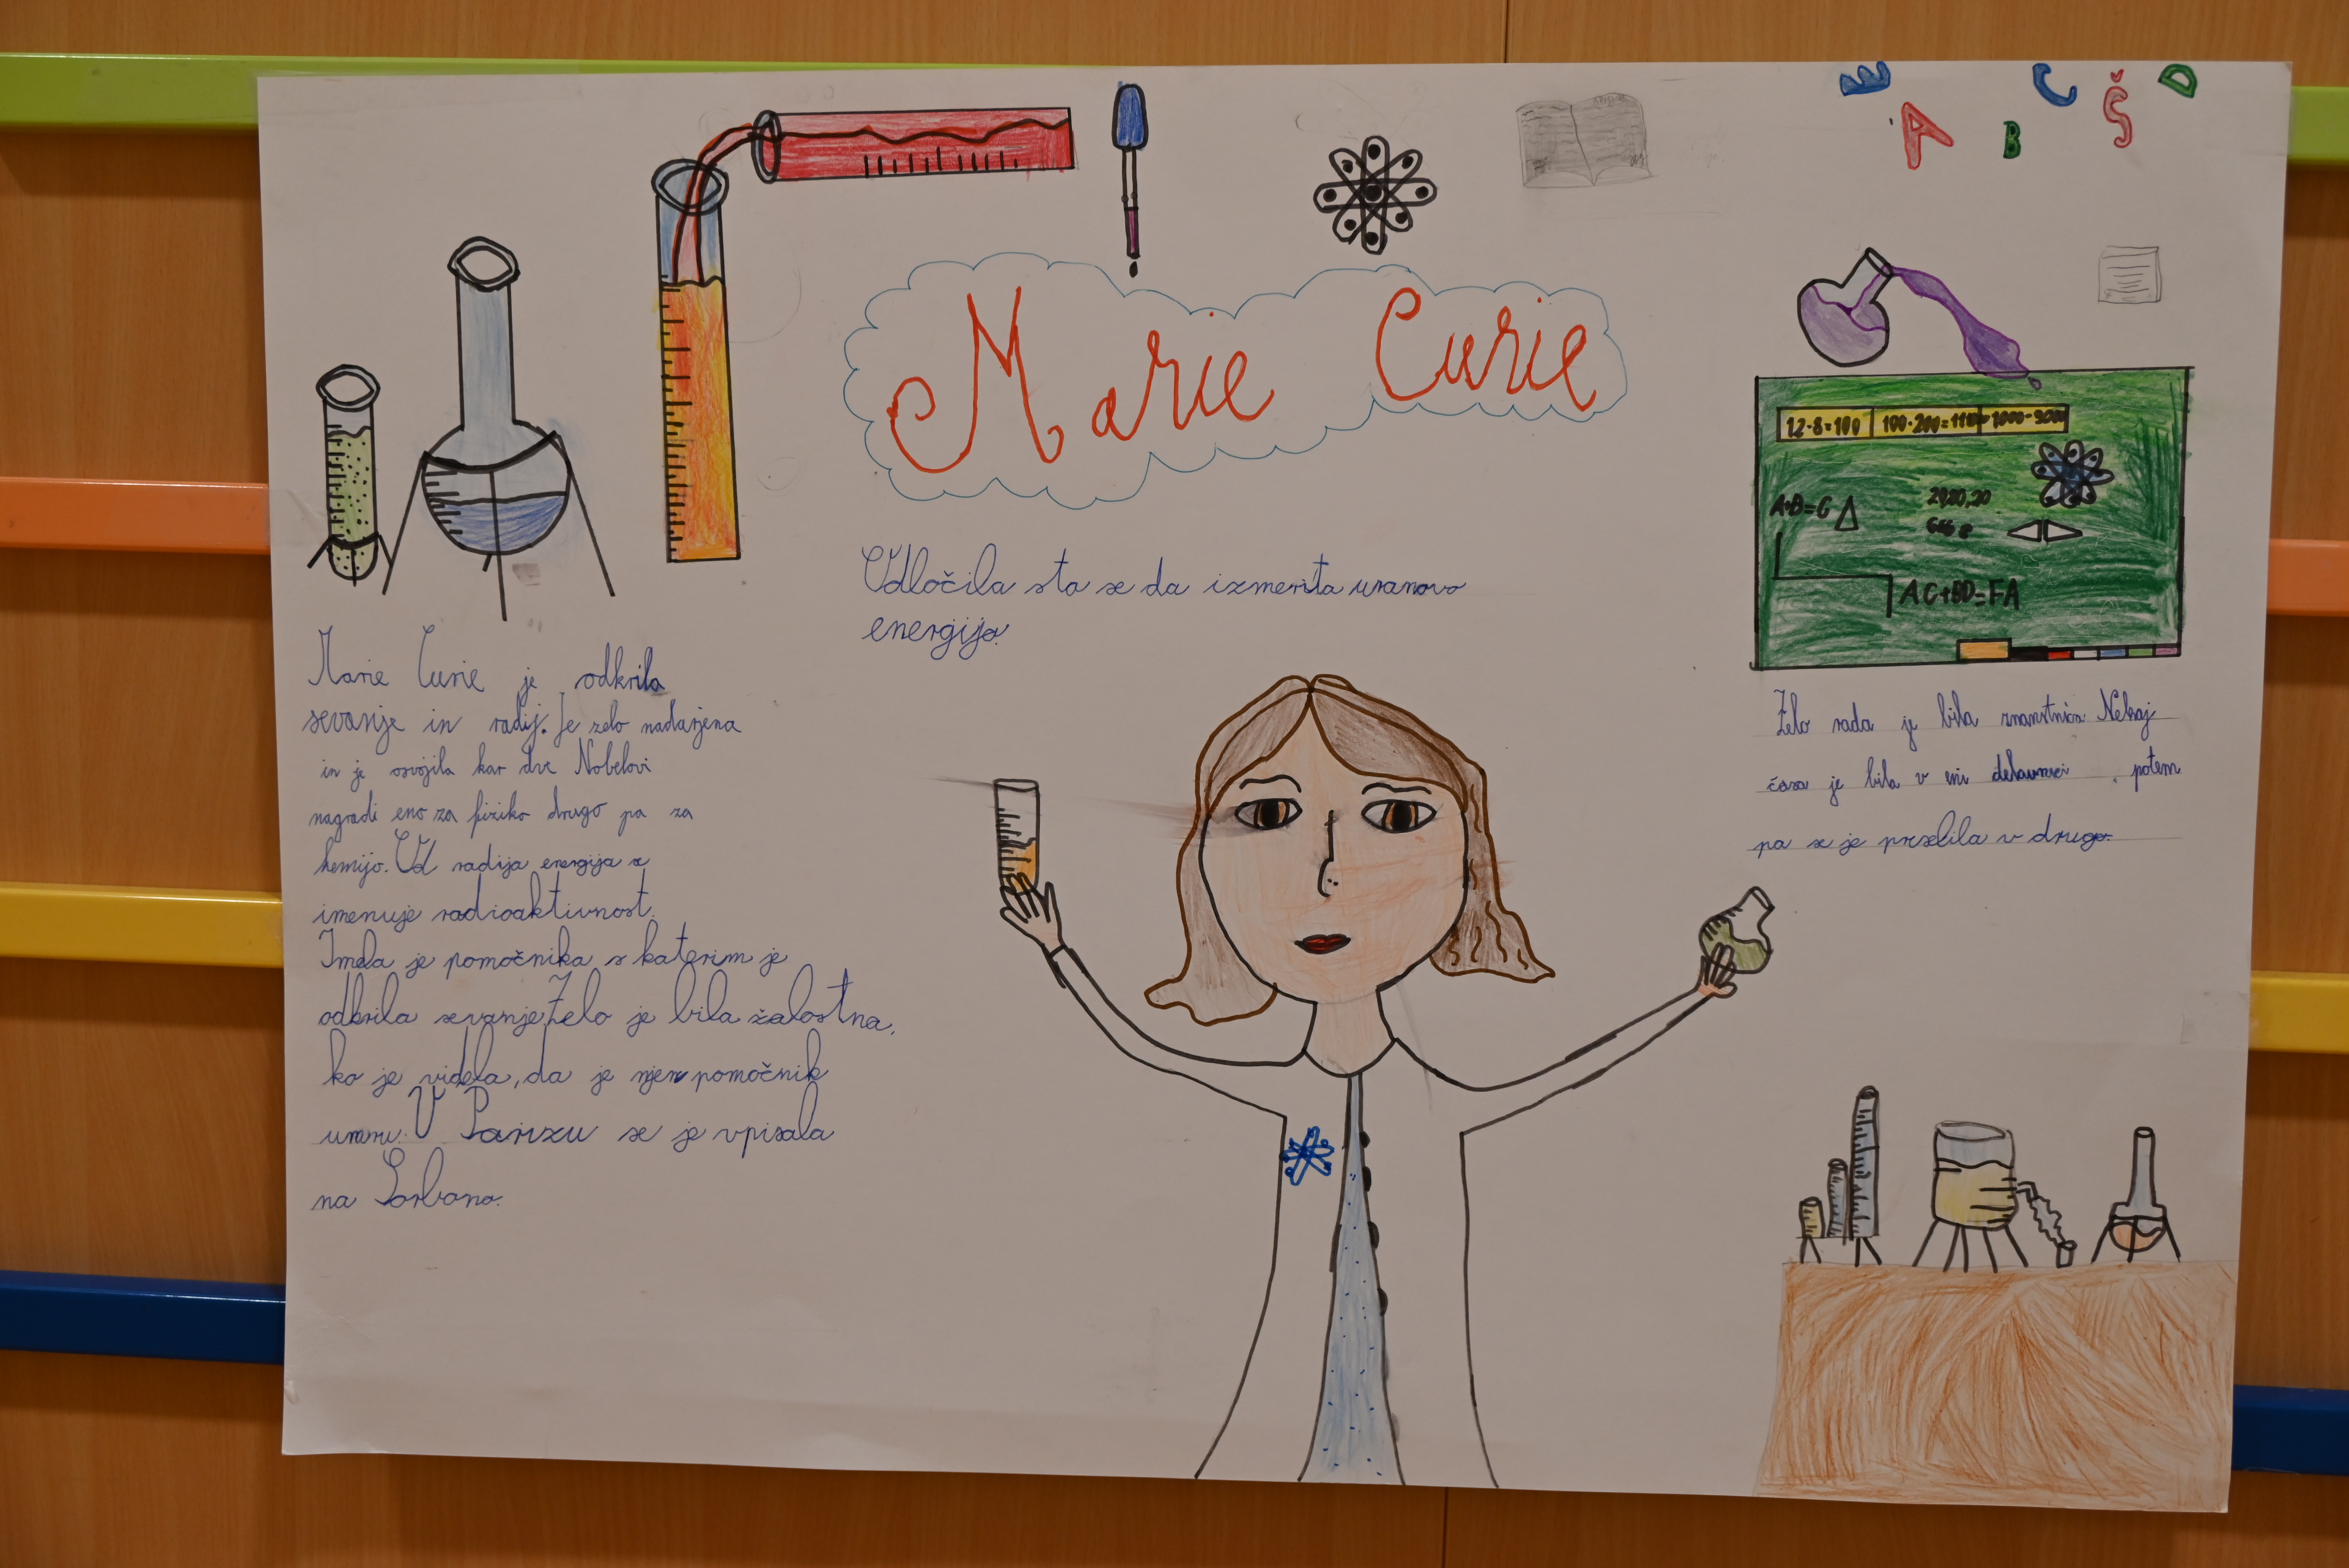 E C Š D
A B
Marie Curie
12·8=100 100·200=111 1000-900
A·B=C
2920,20
AC+BD=FA
Odločila sta se da izmerita uranovo
energijo.
Marie Curie je odkrila
sevanje in radij. Je zelo nadarjena
in je osvojila kar dve Nobelovi
nagradi eno za fiziko drugo pa za
kemijo. Od radija energija se
imenuje radioaktivnost.
Imela je pomočnika s katerim je
odkrila sevanje Zelo je bila žalostna,
ko je videla, da je njen pomočnik
umru. V Parizu se je vpisala
na Sorbono.
Zelo rada je bila znanstnica Nekaj
časa je bila v eni delavnici, potem
pa se je prselila v drugo.